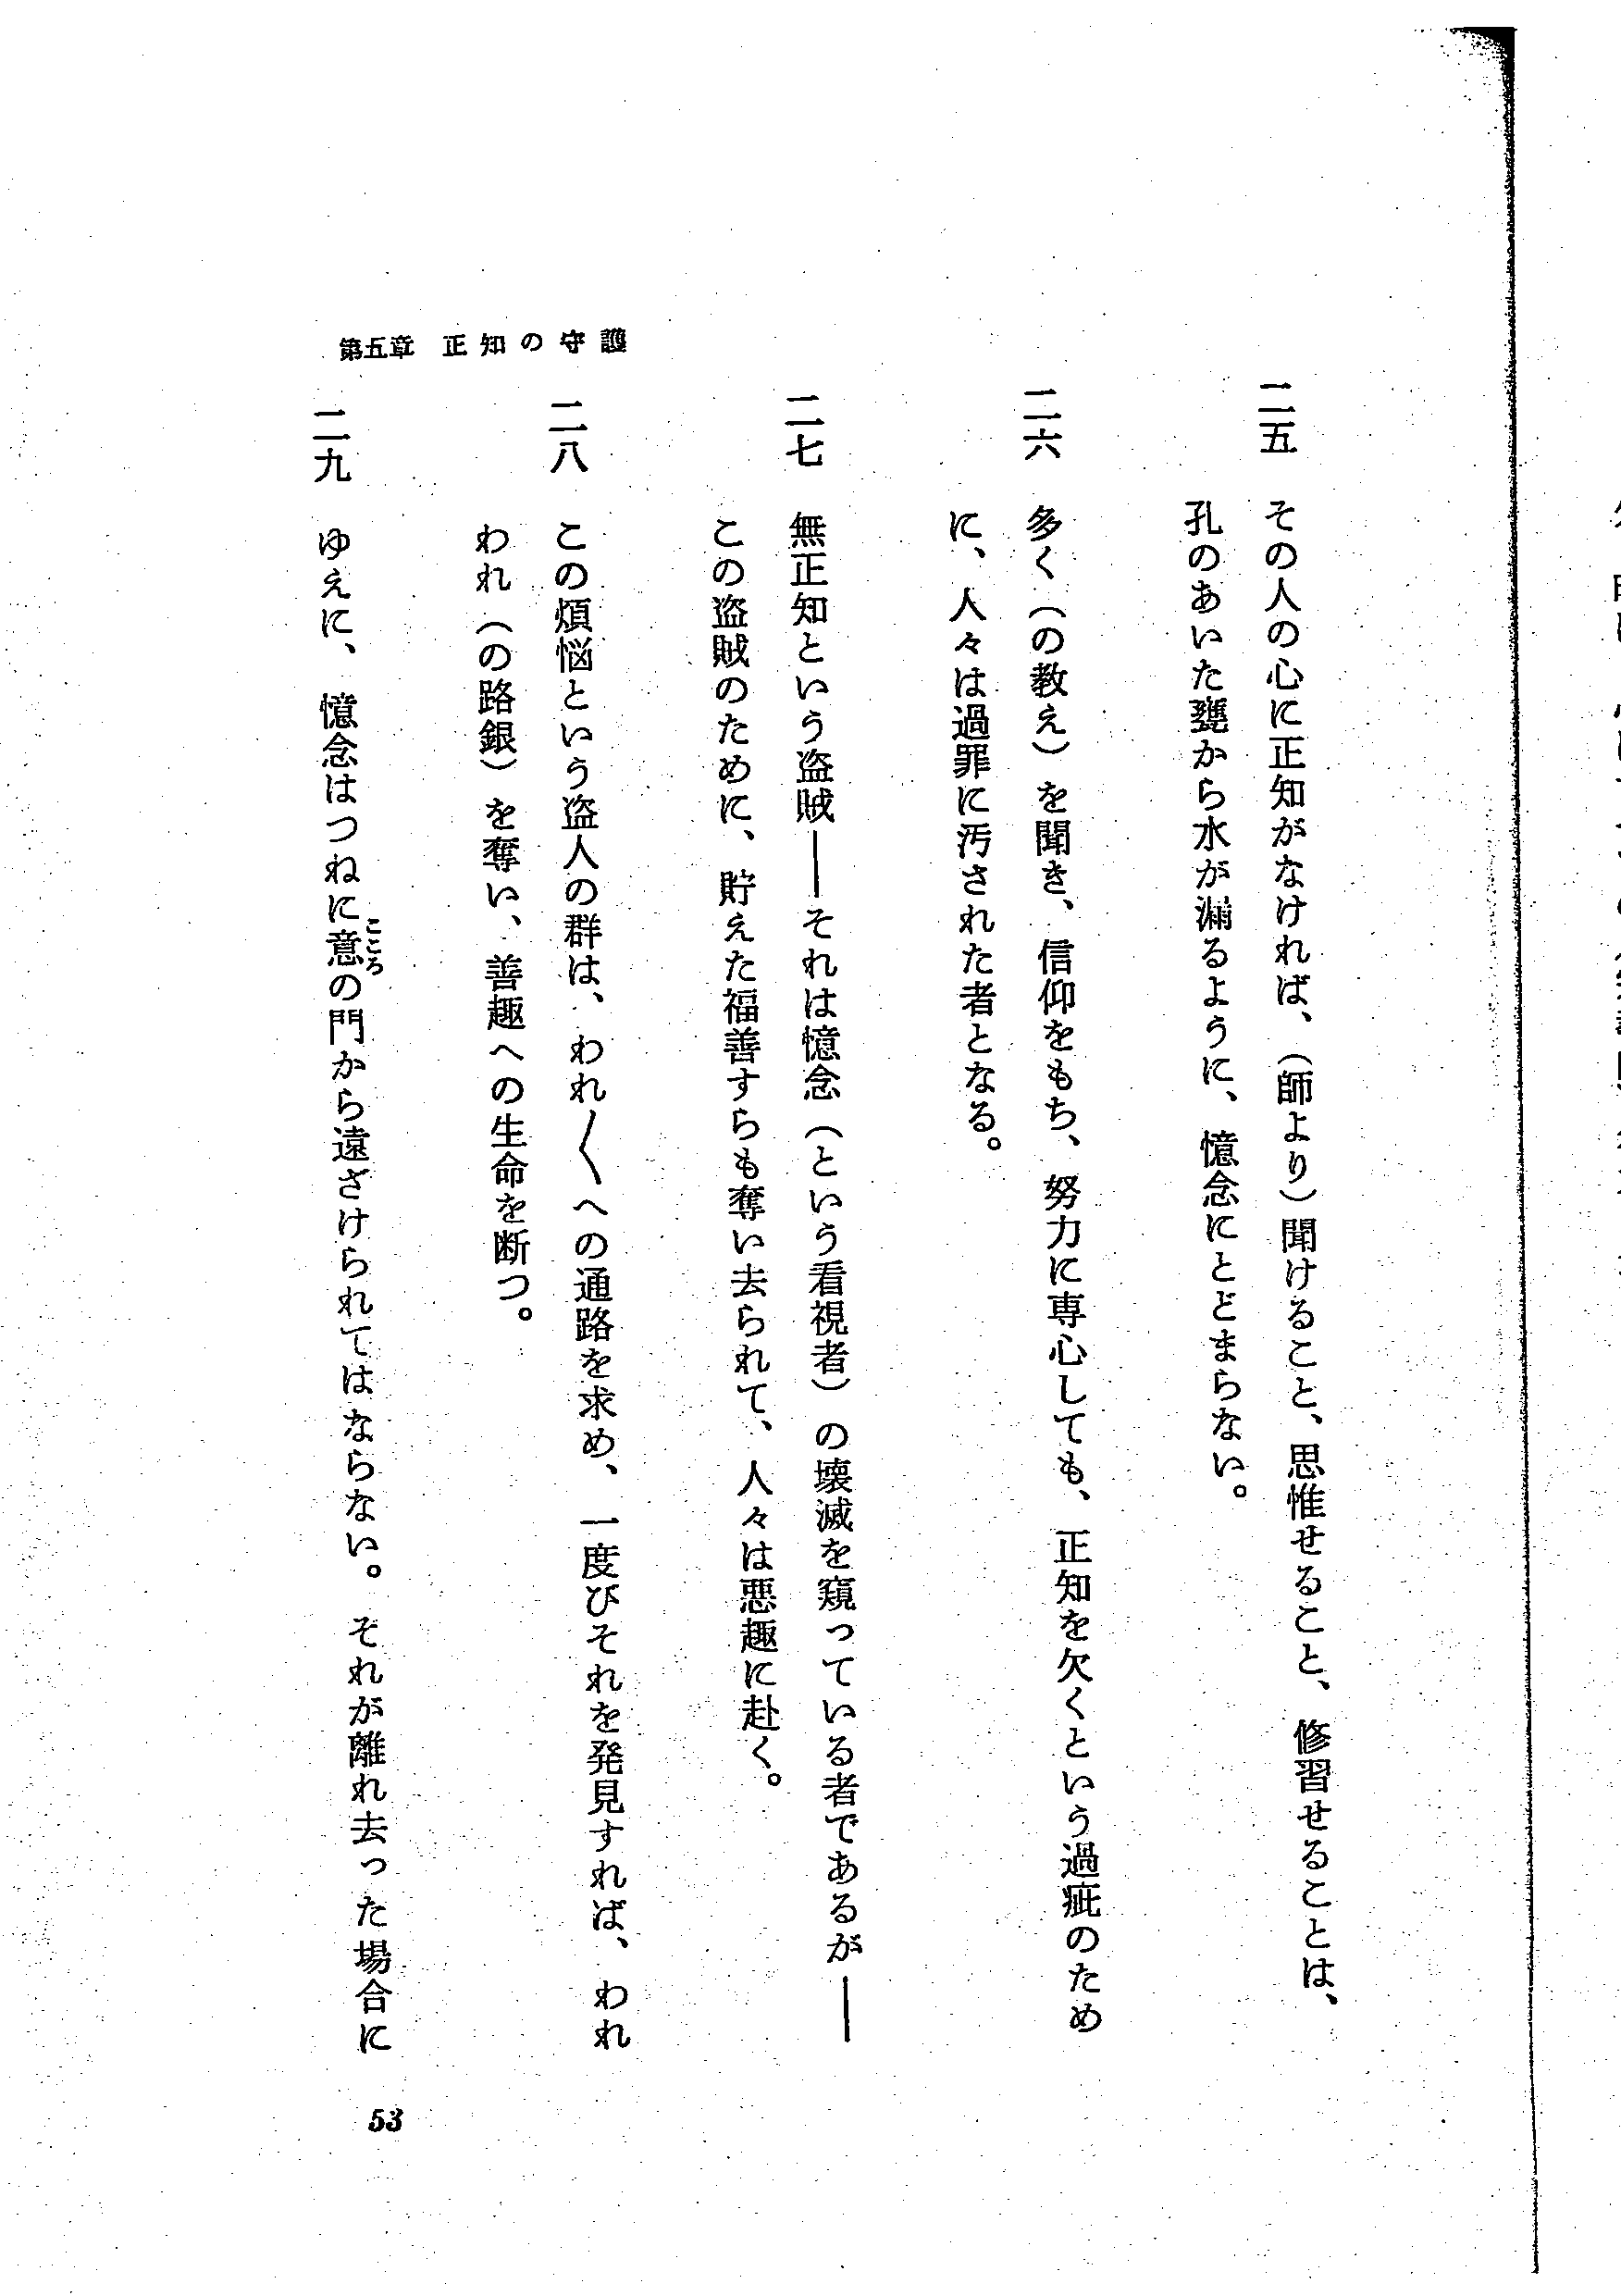 第五章 正知の守護
二五 その人の心に正知がなければ、（師より）聞けること、思惟せること、修習せることは、
孔のあいた甕から水が漏るように、憶念にとどまらない。
二六 多く（の教え）を聞き、信仰をもち、努力に専心しても、正知を欠くという過疵のため
に、人々は過罪に汚された者となる。
二七 無正知という盗賊——それは憶念（という看視者）の壊滅を窺っている者であるが——
この盗賊のために、貯えた福善すらも奪い去られて、人々は悪趣に赴く。
二八 この煩悩という盗人の群は、われ〳〵への通路を求め、一度びそれを発見すれば、われ
われ（の路銀）を奪い、善趣への生命を断つ。
二九 ゆえに、憶念はつねに意の門から遠ざけられてはならない。それが離れ去った場合に
こころ
53